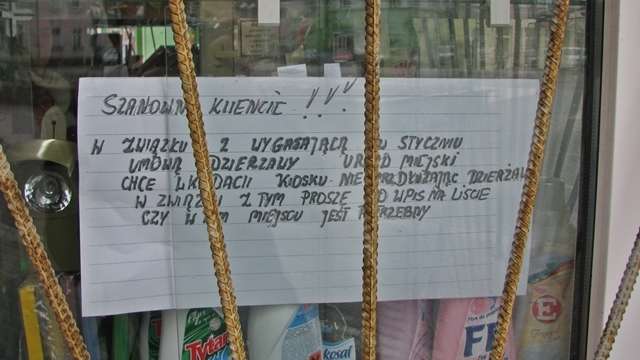 SZANOWNI KLIENCIE !!!
W ZWIĄZKU Z WYGASAJĄCĄ W STYCZNIU
UMOWĄ DZIERŻAWY URZĄD MIEJSKI
CHCE LIKWIDACJI KIOSKU NIE PRZEDŁUŻAJĄC DZIERŻAWY
W ZWIĄZKU Z TYM PROSZĘ O WPIS NA LIŚCIE
CZY W TYM MIEJSCU JEST POTRZEBNY
Tytan
Kosal
E